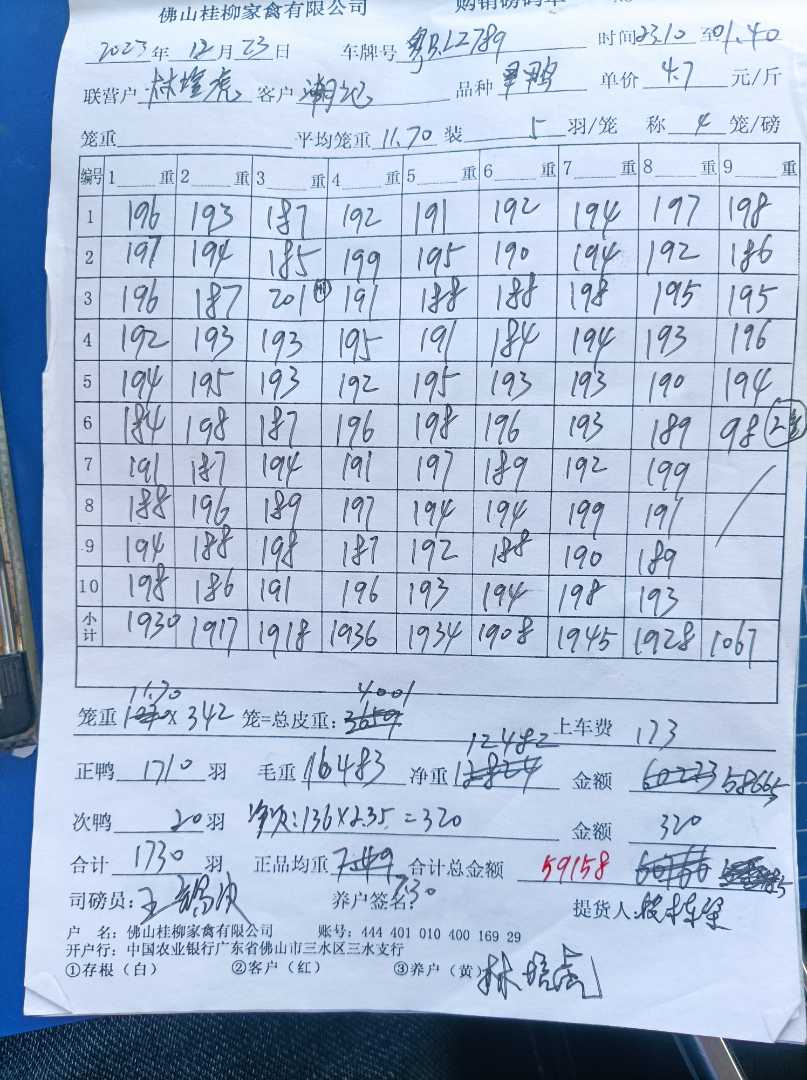 佛山桂柳家禽有限公司 购销磅码单
2023年12月23日 车牌号 粤 L2789 时间23.10至01.40
联营户 客户 品种 单价 4.7 元/斤
笼重 平均笼重 11.70 装 5 羽/笼 称 4 笼/磅
编号 1 重 2 重 3 重 4 重 5 重 6 重 7 重 8 重 9 重
1 196 193 187 192 191 192 194 197 198
2 197 194 185 199 195 190 194 192 186
3 196 187 201 191 188 188 198 195 195
4 192 193 193 195 191 184 194 193 196
5 194 195 193 192 195 193 193 190 194
6 184 198 187 196 198 196 193 189 98
7 191 187 194 191 197 189 192 199
8 188 196 189 197 194 194 199 191
9 194 188 198 187 192 188 190 189
10 198 186 191 196 193 194 198 193
小计 1930 1917 1918 1936 1934 1908 1945 1928 1067
11.70 4001
笼重 × 342 笼=总皮重: 3659 上车费 173
12482
正鸭 1710 羽 毛重 16483 净重 12824 金额 60273 58665
次鸭 20 羽 净次:136×2.35=320 金额 320
合计 1730 羽 正品均重 7.49 合计总金额 59158
7.30
司磅员: 养户签名: 提货人:
户 名: 佛山桂柳家禽有限公司 账号: 444 401 010 400 169 29
开户行: 中国农业银行广东省佛山市三水区三水支行
①存根(白) ②客户(红) ③养户(黄)